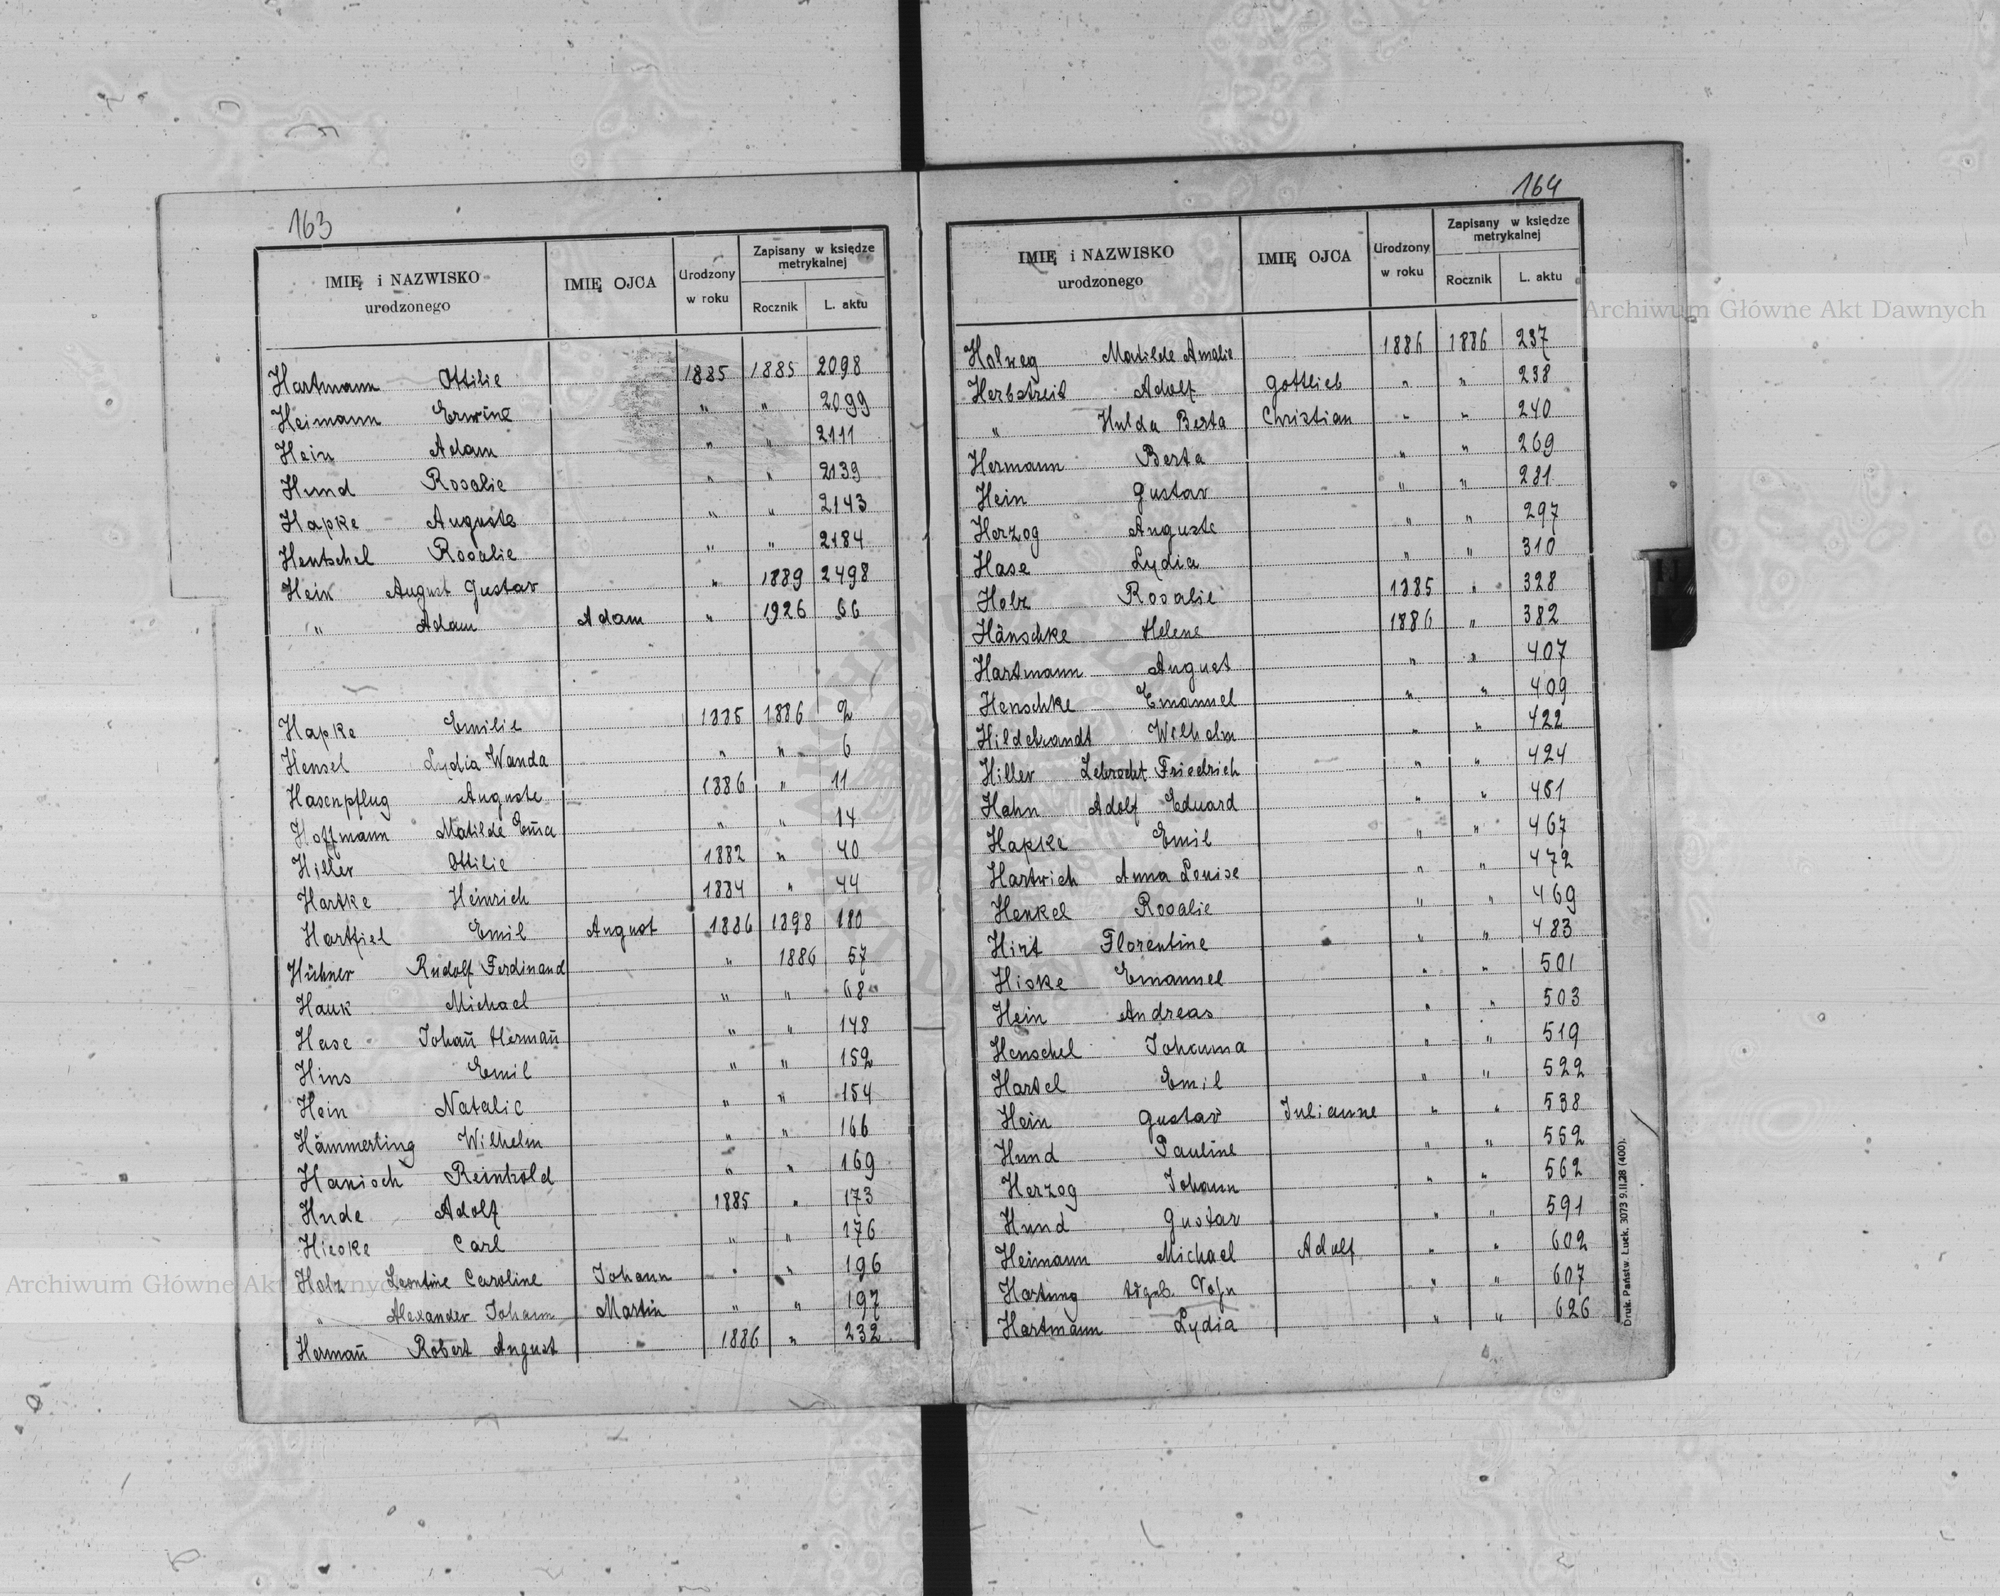 163
IMIĘ i NAZWISKO urodzonego | IMIĘ OJCA | Urodzony w roku | Zapisany w księdze metrykalnej | Rocznik | L. aktu
Hartmann Ottilie 1885 1885 2098
Heimann Erwine " " 2099
Hein Adam " " 2111
Hund Rosalie " " 2139
Hapke Auguste " " 2143
Hentschel Rosalie " " 2184
Hein August Gustav " 1889 2498
" Adam Adam " 1926 66
Hapke Emilie 1885 1886 2
Hensel Lydia Wanda " " 6
Hasenpflug Auguste 1886 " 11
Hoffmann Matilde Em̄a " " 14
Hiller Ottilie 1882 " 40
Hartke Heinrich 1884 " 44
Hartfiel Emil August 1886 1898 180
Hübner Rudolf Ferdinand " 1886 57
Hauk Michael " " 68
Hase Johan̄ Herman̄ " " 148
Hins Emil " " 152
Hein Natalie " " 154
Hämmerling Wilhelm " " 166
Hanisch Reinhold " " 169
Hude Adolf 1885 " 173
Hieske Carl " " 176
Holz Leontine Caroline Johann " " 196
" Alexander Johann Martin " " 197
Herman̄ Robert August 1886 " 232
164
IMIĘ i NAZWISKO urodzonego | IMIĘ OJCA | Urodzony w roku | Zapisany w księdze metrykalnej | Rocznik | L. aktu
Holweg Matilde Amalie 1886 1886 237
Herbstreit Adolf Gottlieb " " 238
" Hulda Berta Christian " " 240
Hermann Berta " " 269
Hein Gustav " " 281
Herzog Auguste " " 297
Hase Lydia " " 310
Holz Rosalie 1885 " 328
Hänschke Helene 1886 " 382
Hartmann August " " 407
Henschke Emanuel " " 409
Hildebrandt Wilhelm " " 422
Hiller Lebrecht Friedrich " " 424
Hahn Adolf Eduard " " 461
Hapke Emil " " 467
Hartwich Anna Louise " " 472
Henkel Rosalie " " 469
Hirt Florentine " " 483
Hiske Emanuel " " 501
Hein Andreas " " 503
Henschel Johanna " " 519
Hartel Emil " " 522
Hein Gustav Julianne " " 538
Hund Pauline " " 552
Herzog Johann " " 562
Hund Gustav " " 591
Heimann Michael Adolf " " 602
Hartung " " 607
Hartmann Lydia " " 626
Druk. Państw. Łuck. 3073 9.II.28 (400).
Archiwum Główne Akt Dawnych
Archiwum Główne Akt Dawnych